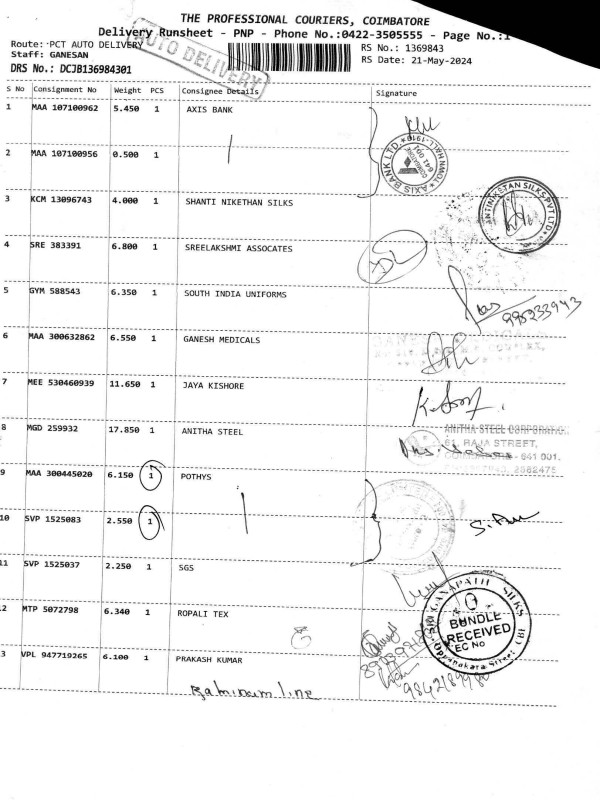 THE PROFESSIONAL COURIERS, COIMBATORE
Delivery Runsheet - PNP - Phone No.:0422-3505555 - Page No.:1
Route: PCT AUTO DELIVERY
AUTO DELIVERY
RS No.: 1369843
Staff: GANESAN
RS Date: 21-May-2024
DRS No.: DCJB136984301
S No Consignment No Weight PCS Consignee Details Signature
1 MAA 107100962 5.450 1 AXIS BANK
AXIS BANK LTD.
641 001
2 MAA 107100956 0.500 1
3 KCM 13096743 4.000 1 SHANTI NIKETHAN SILKS
ANTINIKETAN SILKS PVT LTD
4 SRE 383391 6.800 1 SREELAKSHMI ASSOCATES
5 GYM 588543 6.350 1 SOUTH INDIA UNIFORMS
6 MAA 300632862 6.550 1 GANESH MEDICALS
7 MEE 530460939 11.650 1 JAYA KISHORE
8 MGD 259932 17.850 1 ANITHA STEEL
ANITHA STEEL CORPORATION
61, RAJA STREET,
641 001.
9 MAA 300445020 6.150 1 POTHYS
10 SVP 1525083 2.550 1
11 SVP 1525037 2.250 1 SGS
GANAPATHI SILKS
BUNDLE
RECEIVED
EC No
Oppanakara Street
2 MTP 5072798 6.340 1 ROPALI TEX
3 VPL 947719265 6.100 1 PRAKASH KUMAR